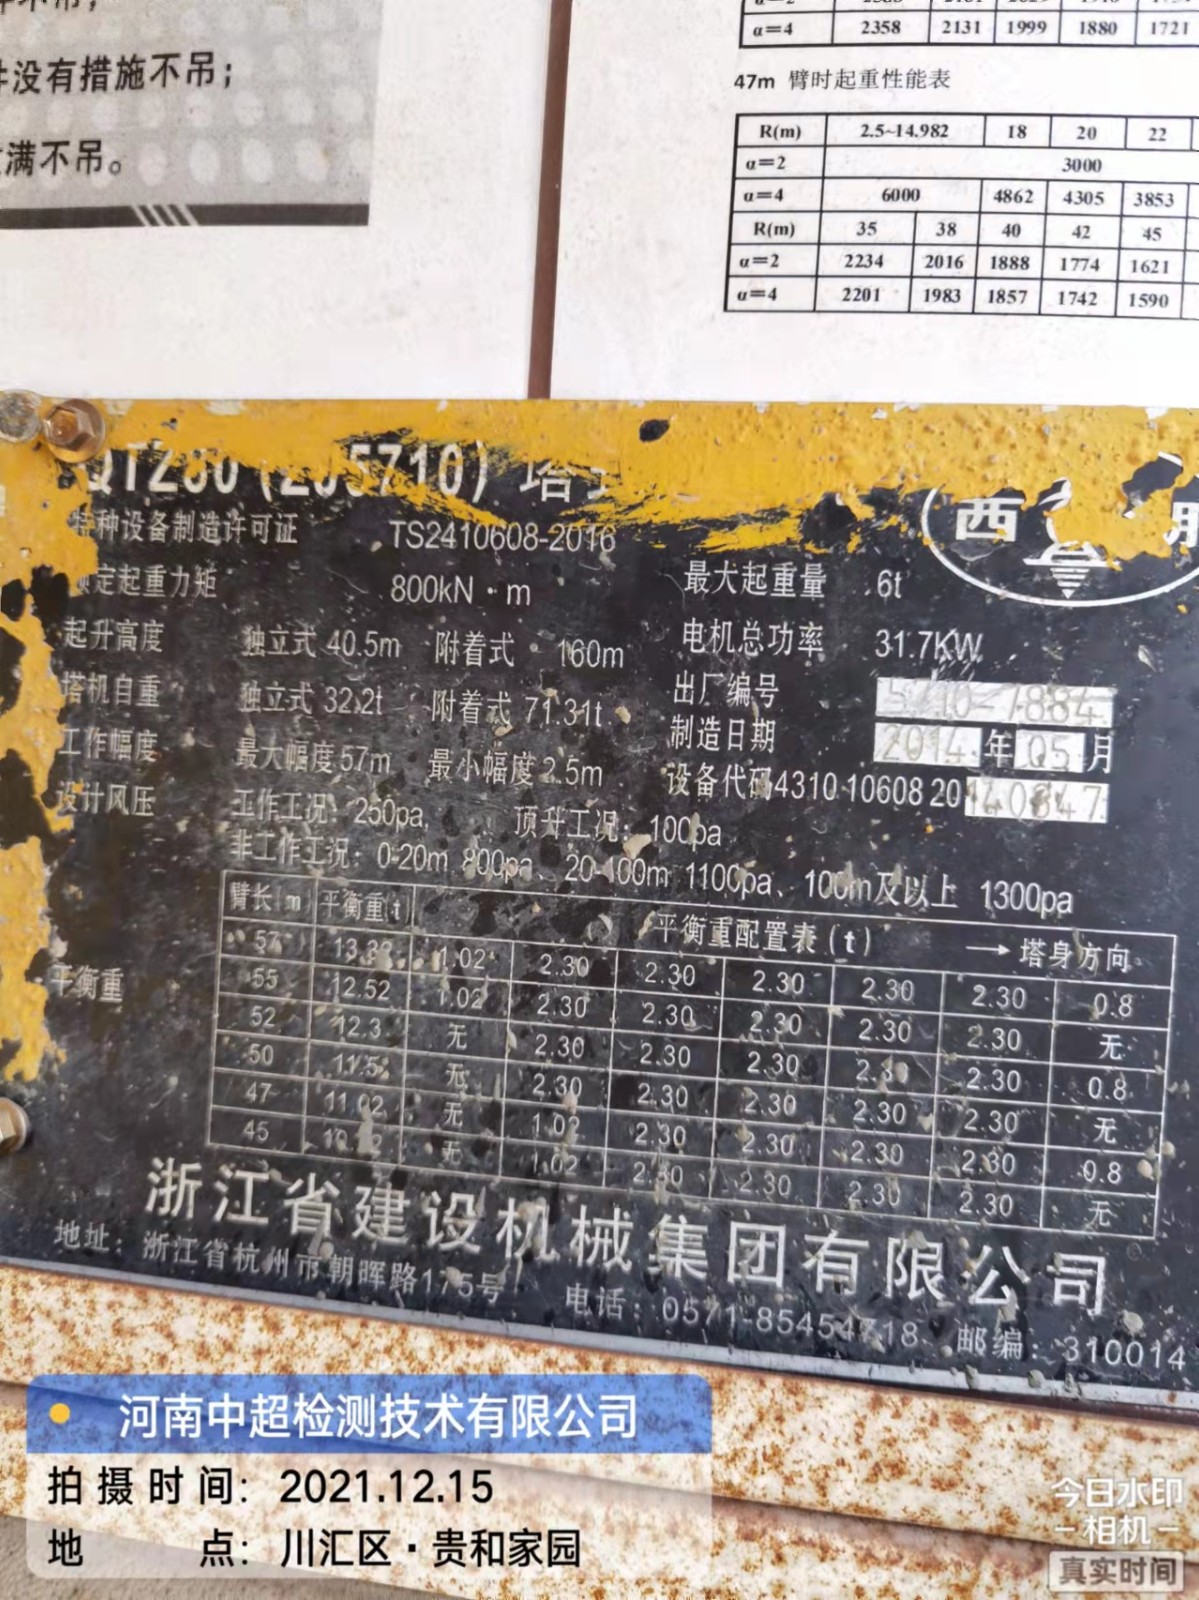 没有措施不吊；
满不吊。
α=4 2358 2131 1999 1880 1721
47m 臂时起重性能表
R(m) 2.5~14.982 18 20 22
α=2 3000
α=4 6000 4862 4305 3853
R(m) 35 38 40 42 45
α=2 2234 2016 1888 1774 1621
α=4 2201 1983 1857 1742 1590
西
特种设备制造许可证 TS2410608-2016
额定起重力矩 800kN·m
最大起重量 6t
起升高度 独立式 40.5m 附着式 160m
电机总功率 31.7KW
塔机自重 独立式 32.2t 附着式 71.31t
出厂编号 5710-7884
工作幅度 最大幅度 57m 最小幅度 2.5m
制造日期 2014 年 05 月
设备代码 4310 10608 20140847
设计风压 工作工况：250pa、 顶升工况：100pa
非工作工况：0-20m 800pa、20-100m 1100pa、100m及以上 1300pa
平衡重
臂长(m) 平衡重(t) 平衡重配置表(t) →塔身方向
57 1.02 2.30 2.30 2.30 2.30 2.30 0.8
55 12.52 1.02 2.30 2.30 2.30 2.30 2.30 无
52 12.3 无 2.30 2.30 2.30 2.30 2.30 0.8
50 11.5 无 2.30 2.30 2.30 2.30 2.30 无
47 11.02 无 1.02 2.30 2.30 2.30 2.30 0.8
45 无 1.02 2.30 2.30 2.30 2.30 无
浙江省建设机械集团有限公司
地址：浙江省杭州市朝晖路175号 电话：0571-85454718 邮编：310014
河南中超检测技术有限公司
拍摄时间：2021.12.15
地 点：川汇区·贵和家园
今日水印
-相机-
真实时间